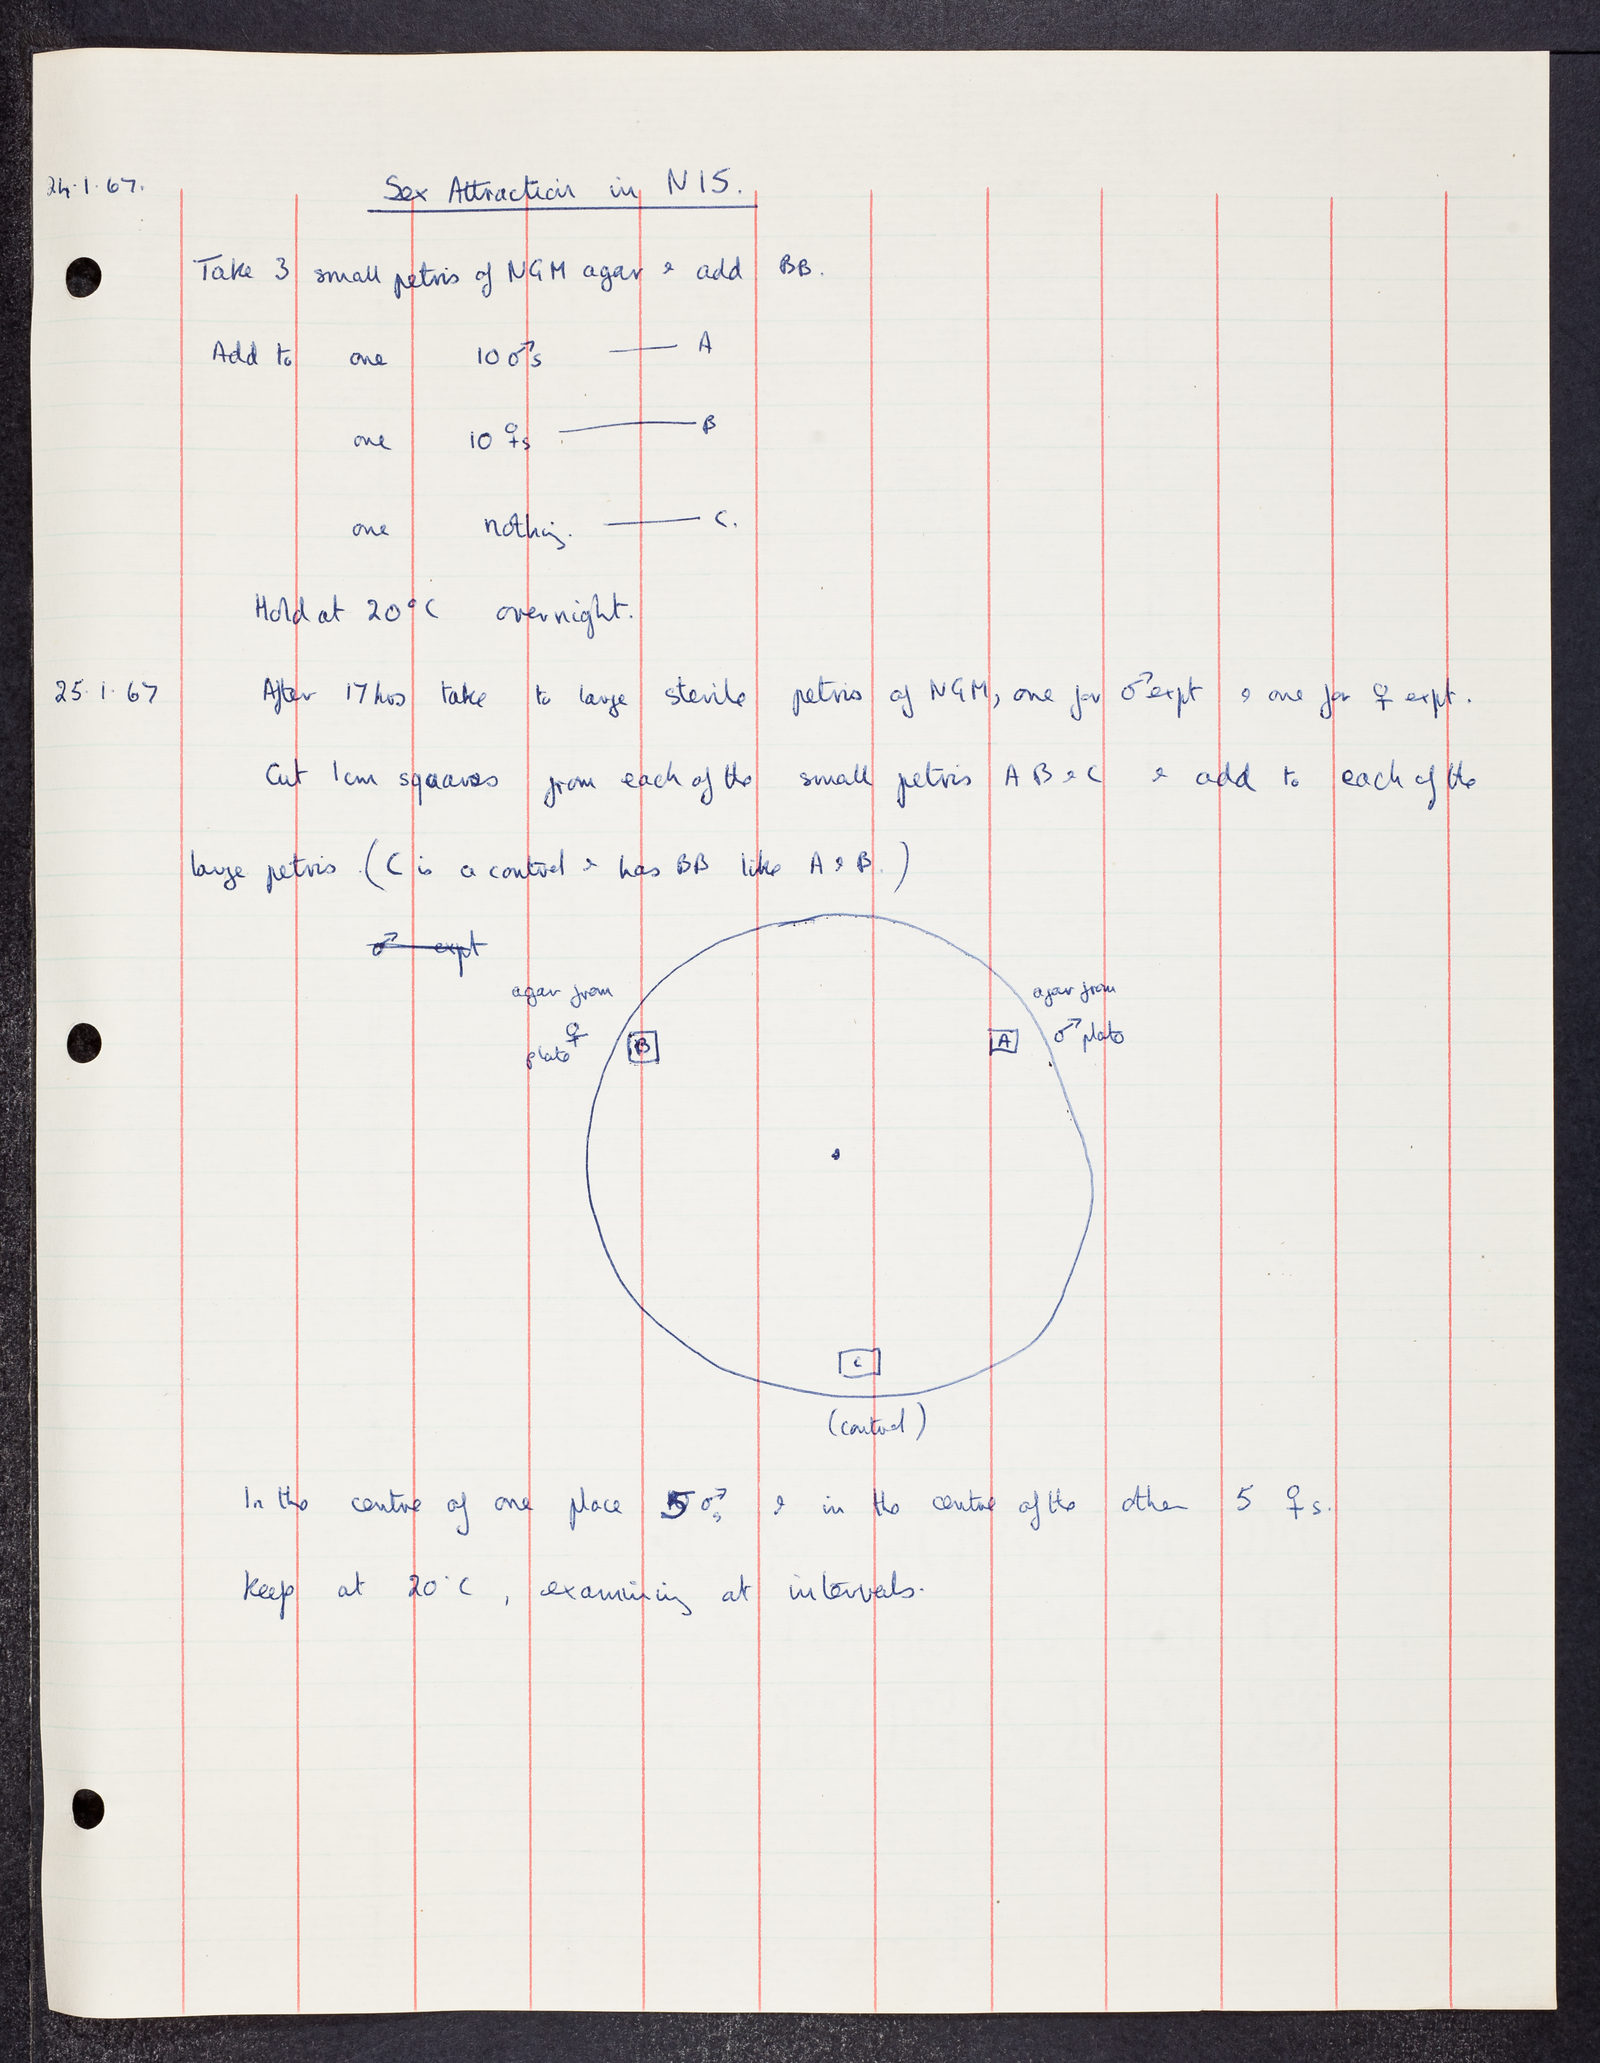 24.1.67. Sex Attraction in N15.
Take 3 small petris of NGM agar & add BB.
Add to one 10 ♂s — A
one 10 ♀s — B
one nothing. — C.
Hold at 20°C overnight.
25.1.67 After 17 hrs take to large sterile petris of NGM, one for ♂ expt & one for ♀ expt.
Cut 1cm squares from each of the small petris A B & C & add to each of the
large petris. (C is a control & has BB like A & B.)
♂ expt
agar from
♀
plate
B
agar from
♂ plate
A
C
(control)
In the centre of one place 5 ♂s & in the centre of the other 5 ♀s.
Keep at 20°C, examining at intervals.